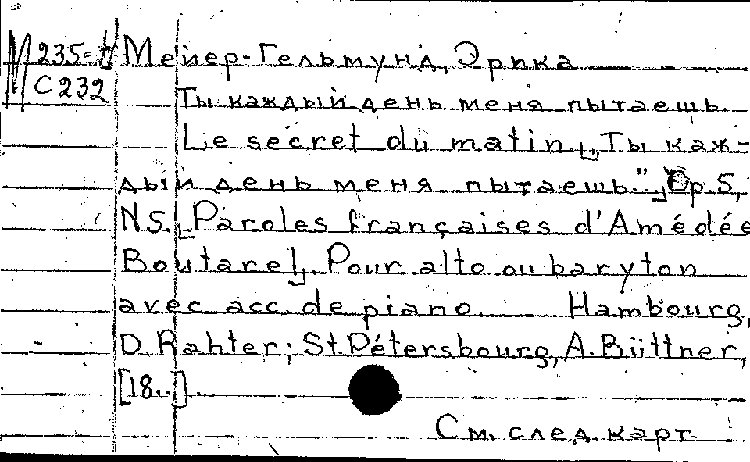 М 235= Мейер-Гельмунд, Эрика
С 232
Ты каждый день меня пытаешь.
Le secret du matin „Ты каж-
дый день меня пытаешь." Op. 5,
N 5. Paroles françaises d'Amédée
Boutarel. Pour alto ou baryton
avec acc. de piano. Hambourg,
D. Rahter; St. Pétersbourg, A. Büttner,
[18..].
См. след. карт